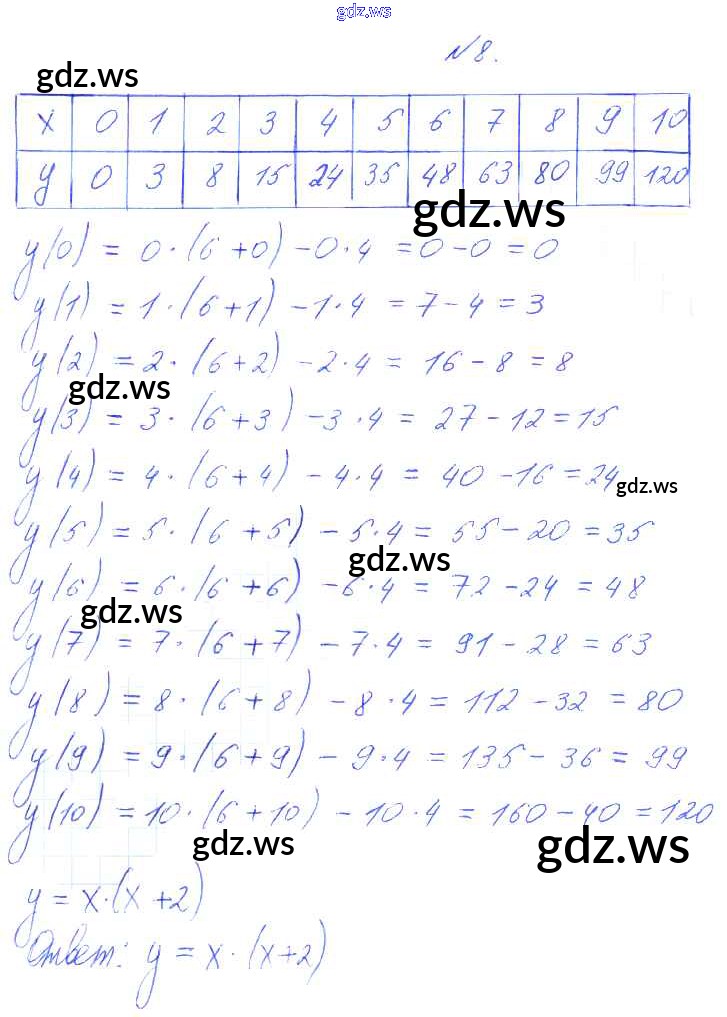 gdz.ws
N8.
gdz.ws
x 0 1 2 3 4 5 6 7 8 9 10
y 0 3 8 15 24 35 48 63 80 99 120
gdz.ws
y(0) = 0·(6+0) - 0·4 = 0 - 0 = 0
y(1) = 1·(6+1) - 1·4 = 7 - 4 = 3
y(2) = 2·(6+2) - 2·4 = 16 - 8 = 8
gdz.ws
y(3) = 3·(6+3) - 3·4 = 27 - 12 = 15
y(4) = 4·(6+4) - 4·4 = 40 - 16 = 24
gdz.ws
y(5) = 5·(6+5) - 5·4 = 55 - 20 = 35
gdz.ws
y(6) = 6·(6+6) - 6·4 = 72 - 24 = 48
gdz.ws
y(7) = 7·(6+7) - 7·4 = 91 - 28 = 63
y(8) = 8·(6+8) - 8·4 = 112 - 32 = 80
y(9) = 9·(6+9) - 9·4 = 135 - 36 = 99
y(10) = 10·(6+10) - 10·4 = 160 - 40 = 120
gdz.ws
gdz.ws
y = x·(x+2)
Ответ: y = x·(x+2)